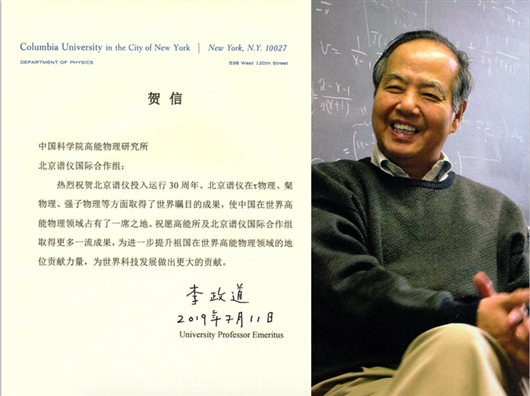 Columbia University in the City of New York | New York, N.Y. 10027
DEPARTMENT OF PHYSICS 538 West 120th Street
贺 信
中国科学院高能物理研究所
北京谱仪国际合作组：
热烈祝贺北京谱仪投入运行 30 周年。北京谱仪在τ物理、粲
物理、强子物理等方面取得了世界瞩目的成果，使中国在世界高
能物理领域占有了一席之地。祝愿高能所及北京谱仪国际合作组
取得更多一流成果，为进一步提升祖国在世界高能物理领域的地
位贡献力量，为世界科技发展做出更大的贡献。
李政道
2019年7月11日
University Professor Emeritus